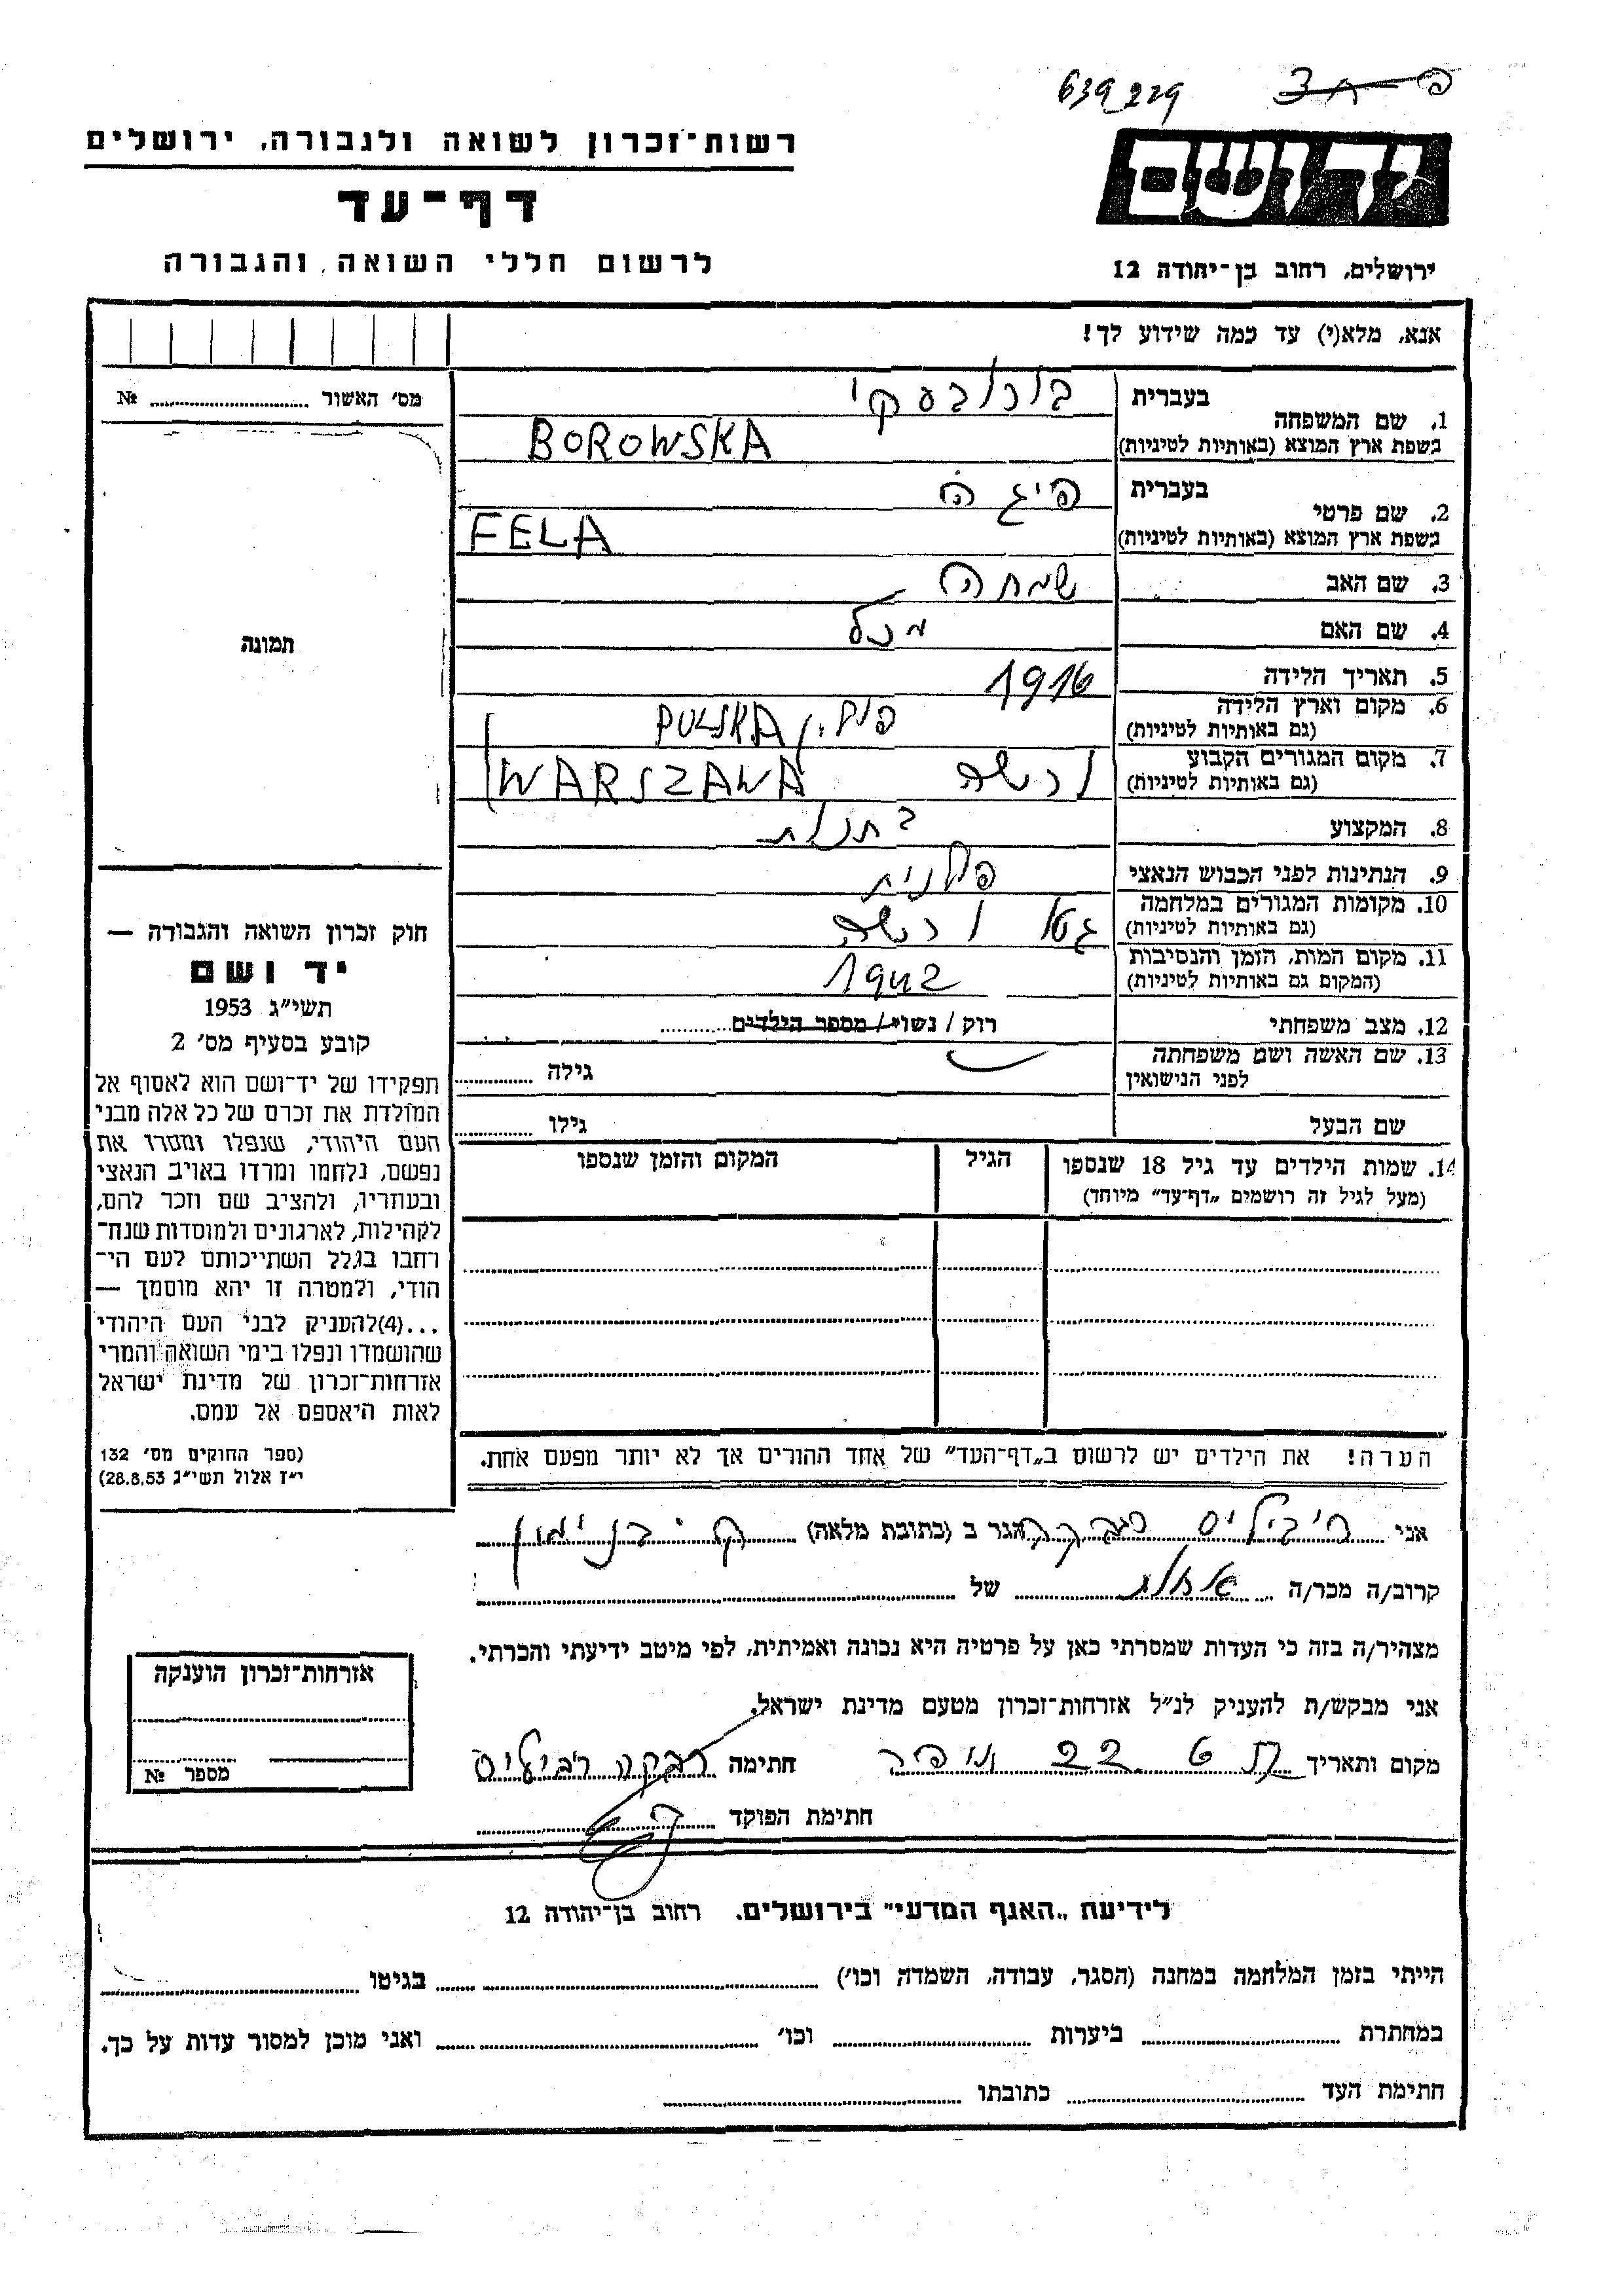 639229
רשות־זכרון לשואה ולגבורה, ירושלים
יד ושם
דף־עד
לרשום חללי השואה והגבורה
ירושלים, רחוב בן־יהודה 12
אנא, מלא(י) עד כמה שידוע לך!
מס׳ האשור № 
1. שם המשפחה
בעברית
בשפת ארץ המוצא (באותיות לטיניות)
BOROWSKA
2. שם פרטי
בעברית פיגה
בשפת ארץ המוצא (באותיות לטיניות)
FELA
3. שם האב שמחה
4. שם האם
5. תאריך הלידה 1916
6. מקום וארץ הלידה
(גם באותיות לטיניות)
פולין, POLSKA
7. מקום המגורים הקבוע
(גם באותיות לטיניות)
ורשה WARSZAWA
8. המקצוע
9. הנתינות לפני הכבוש הנאצי פולנית
10. מקומות המגורים במלחמה
(גם באותיות לטיניות)
גטו ורשה
11. מקום המות, הזמן והנסיבות
(המקום גם באותיות לטיניות)
1942
12. מצב משפחתי רוק / נשוי / מספר הילדים
13. שם האשה ושם משפחתה
לפני הנישואין
גילה
שם הבעל גילו
14. שמות הילדים עד גיל 18 שנספו
(מעל לגיל זה רושמים „דף־עד״ מיוחד)
הגיל
המקום והזמן שנספו
הערה! את הילדים יש לרשום ב„דף־העד״ של אחד ההורים אך לא יותר מפעם אחת.
תמונה
חוק זכרון השואה והגבורה —
יד ושם
תשי״ג 1953
קובע בסעיף מס׳ 2
תפקידו של יד־ושם הוא לאסוף אל
המולדת את זכרם של כל אלה מבני
העם היהודי, שנפלו ומסרו את
נפשם, נלחמו ומרדו באויב הנאצי
ובעוזריו, ולהציב שם וזכר להם,
לקהילות, לארגונים ולמוסדות שנח־
רבו בגלל השתייכותם לעם הי־
הודי, ולמטרה זו יהא מוסמך —
...(4)להעניק לבני העם היהודי
שהושמדו ונפלו בימי השואה והמרי
אזרחות־זכרון של מדינת ישראל
לאות היאספם אל עמם.
(ספר החוקים מס׳ 132
י״ז אלול תשי״ג 28.8.53)
אני רבקה הגר ב (כתובת מלאה) ק. בנימין
קרוב/ה מכר/ה אחות של
מצהיר/ה בזה כי העדות שמסרתי כאן על פרטיה היא נכונה ואמיתית, לפי מיטב ידיעתי והכרתי.
אני מבקש/ת להעניק לנ״ל אזרחות־זכרון מטעם מדינת ישראל.
מקום ותאריך חתימה רבקה
חתימת הפוקד
אזרחות־זכרון הוענקה
מספר №
לידיעת „האגף המדעי״ בירושלים. רחוב בן־יהודה 12
הייתי בזמן המלחמה במחנה (הסגר, עבודה, השמדה וכו׳) בגיטו
במחתרת ביערות וכו׳ ואני מוכן למסור עדות על כך.
חתימת העד כתובתו